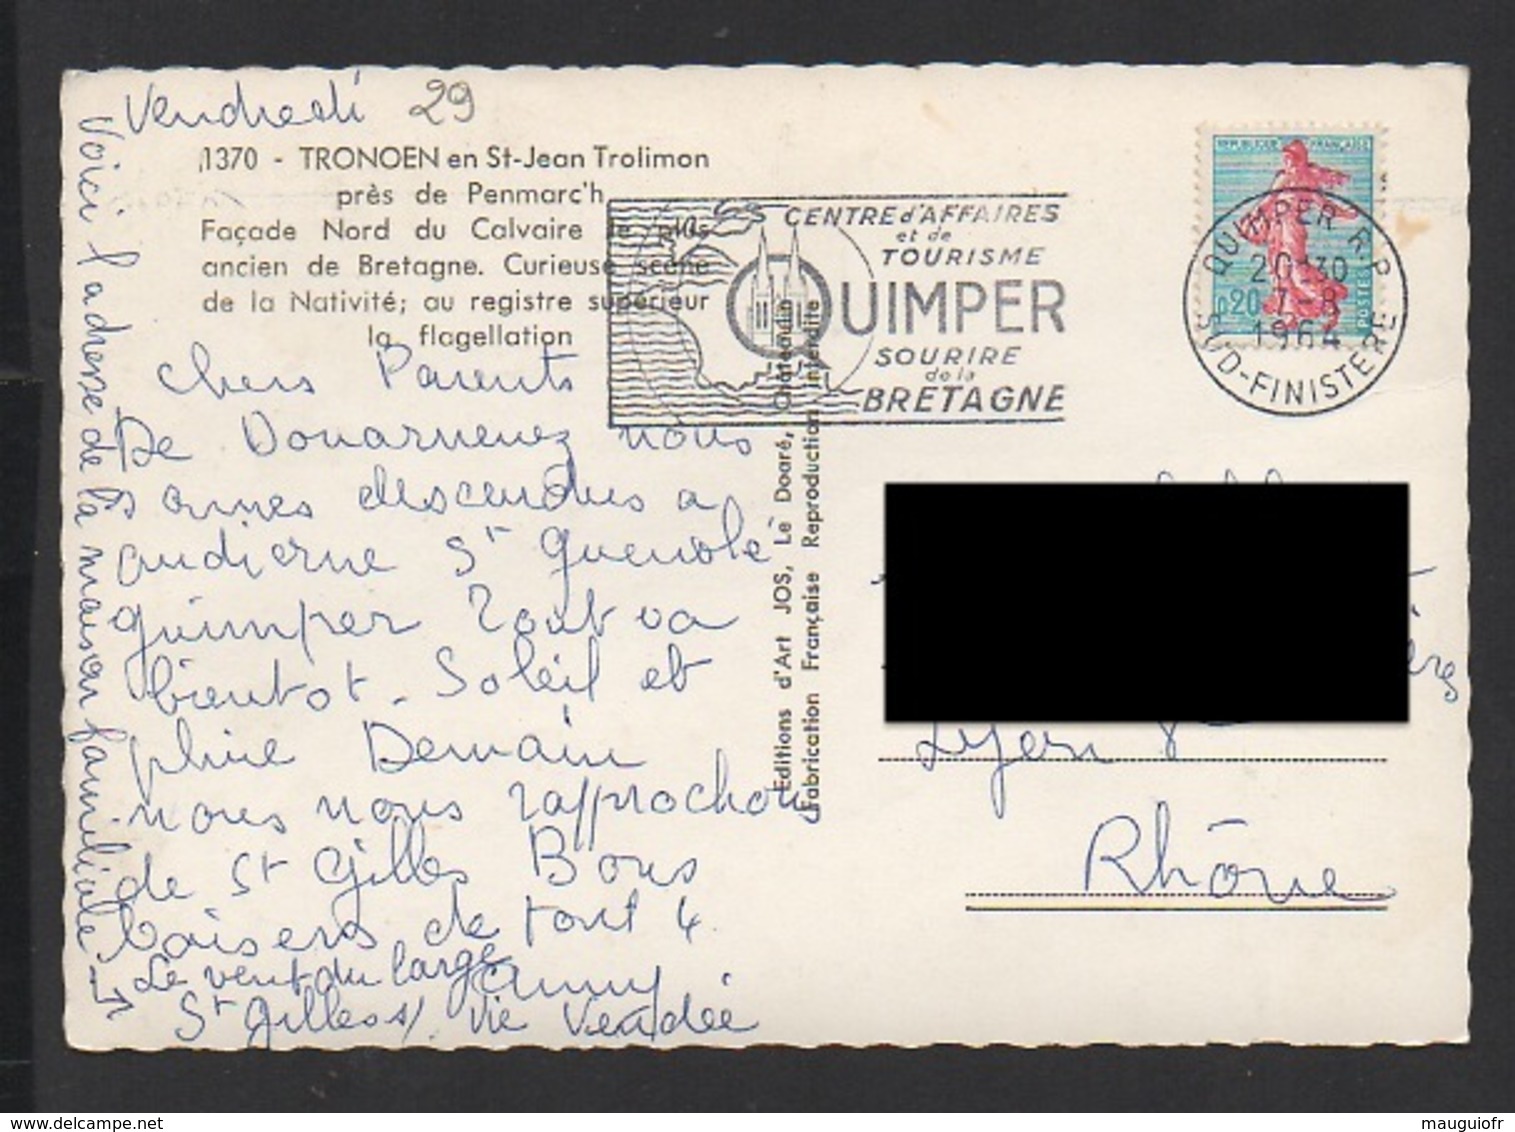 Vendredi 29
1370 - TRONOEN en St-Jean Trolimon
près de Penmarc'h
Façade Nord du Calvaire le plus
ancien de Bretagne. Curieuse scène
de la Nativité; au registre supérieur
la flagellation
chers Parents
De Douarnenez nous
sommes descendus a
audierne St Guenole
quimper Tout va
bientot. Soleil et
pluie Demain
nous nous rapprochons
de St Gilles Bons
baisers de tout 4
anny
Voici l'adresse de la maison familiale
Le vent du large
St Gilles s/ Vie Vendée
Editions d'Art JOS, Le Doaré, Châteaulin
Fabrication Française Reproduction Interdite
CENTRE d'AFFAIRES
et de
TOURISME
QUIMPER
SOURIRE
de la
BRETAGNE
REPUBLIQUE FRANÇAISE
0,20
POSTES
QUIMPER R.P.
20-30
7-8
1964
SUD-FINISTERE
Lyon 8
Rhône
mauguiofr